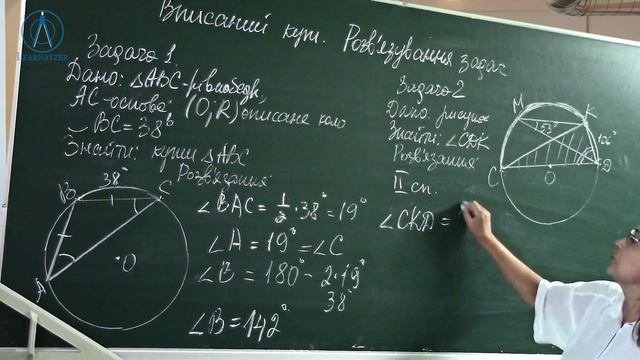 LEARNAYZER
Вписаний кут. Розв'язування задач
Задача 1.
Дано: △ABC-рівнобедр,
AC-основа; (O;R) описане коло
◡BC=38°
Знайти: кути △ABC
Розв'язання:
38°
B
C
A
O
∠BAC = 1/2 · 38° = 19°
∠A = 19° = ∠C
∠B = 180° - 2·19°
38°
∠B = 142°
Задача 2
Дано: рисунок
Знайти: ∠CDK
Розв'язання:
II сп.
∠CKD =
M
K
153°
C
D
O